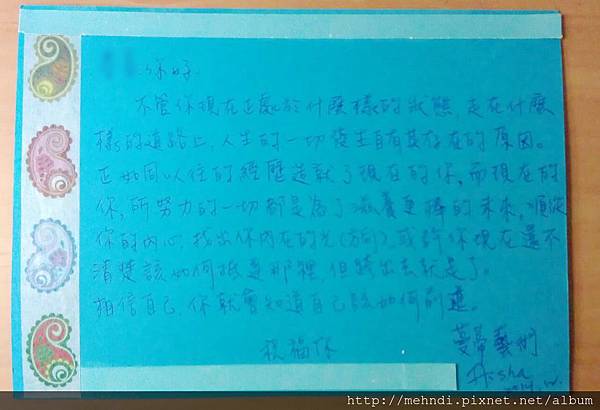 你好.
不管你現在正處於什麼樣的狀態, 走在什麼
樣的道路上, 人生的一切發生自有其存在的原因。
正如同以往的經歷造就了現在的你, 而現在的
你, 所努力的一切都是為了滋養更棒的未來, 順從
你的內心, 找出你內在的光(方向), 或許你現在還不
清楚該如何抵達那裡, 但踏出去就是了。
相信自己, 你就會知道自己該如何前進。
祝福你
蔓蒂藝術
Aisha
2014.
http://mehndi.pixnet.net/album